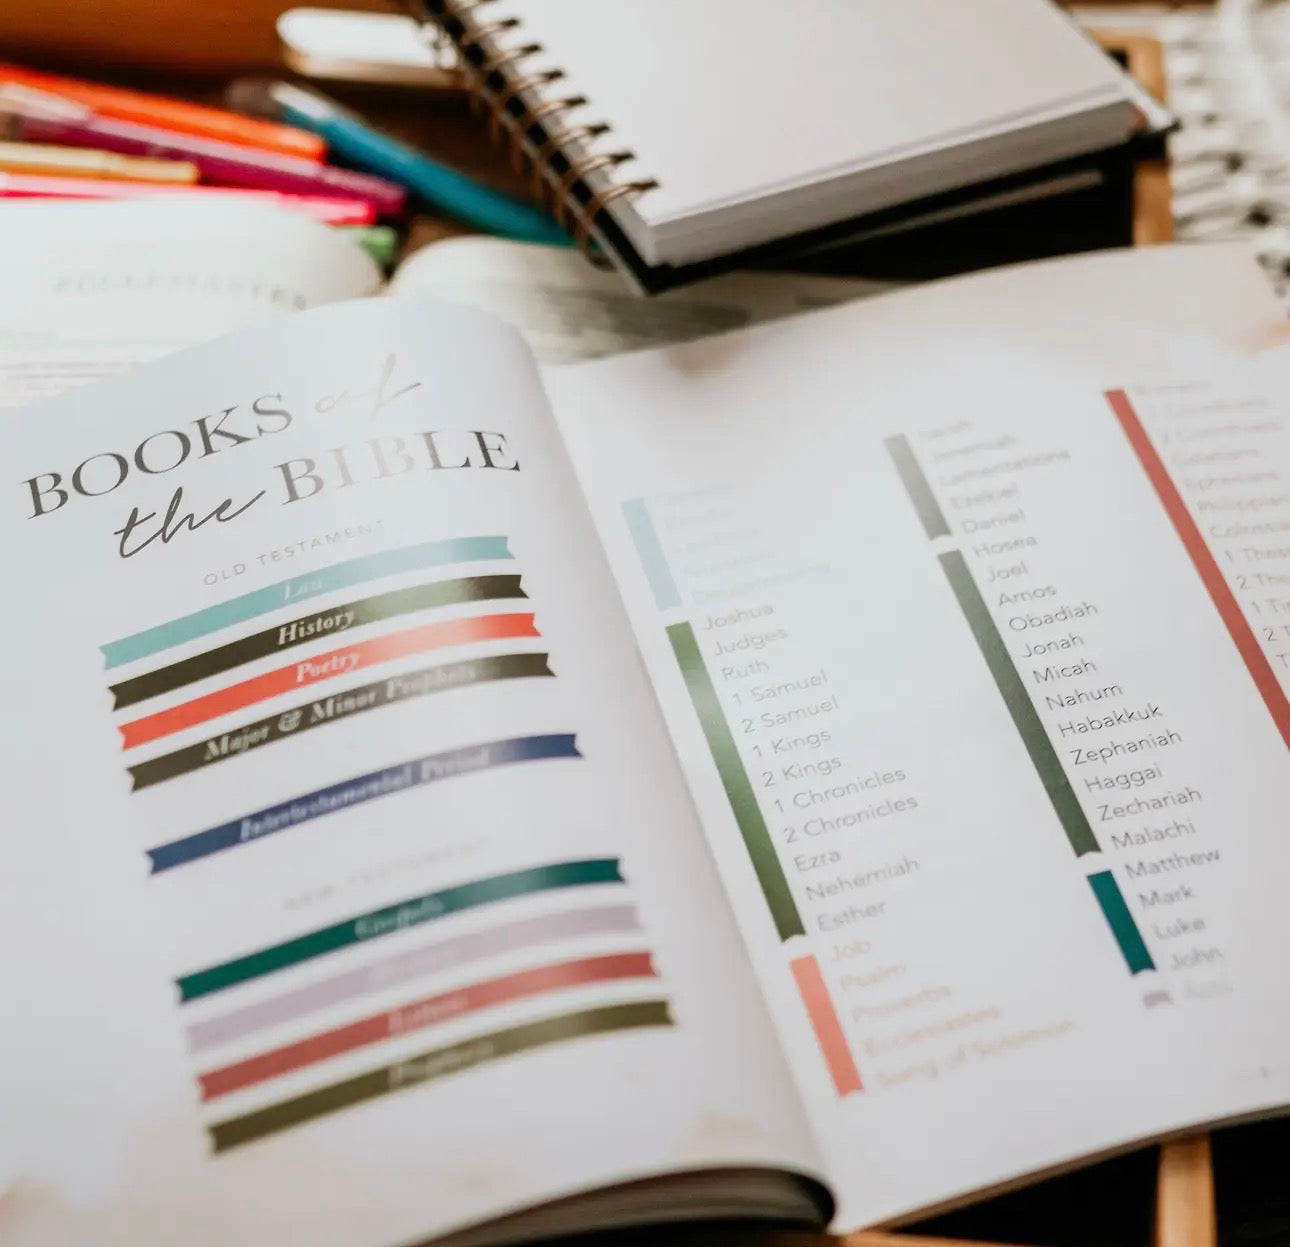 ECCLESIASTES
BOOKS of
the BIBLE
OLD TESTAMENT
Law
History
Poetry
Major & Minor Prophets
Intertestamental Period
NEW TESTAMENT
Gospels
Letters
Prophecy
Deuteronomy
Joshua
Judges
Ruth
1 Samuel
2 Samuel
1 Kings
2 Kings
1 Chronicles
2 Chronicles
Ezra
Nehemiah
Esther
Job
Psalm
Proverbs
Ecclesiastes
Song of Solomon
Isaiah
Jeremiah
Lamentations
Ezekiel
Daniel
Hosea
Joel
Amos
Obadiah
Jonah
Micah
Nahum
Habakkuk
Zephaniah
Haggai
Zechariah
Malachi
Matthew
Mark
Luke
John
Acts
Romans
1 Corinthians
2 Corinthians
Galatians
Ephesians
Philippian
Colossia
1 Thes
2 The
1 Ti
2 T